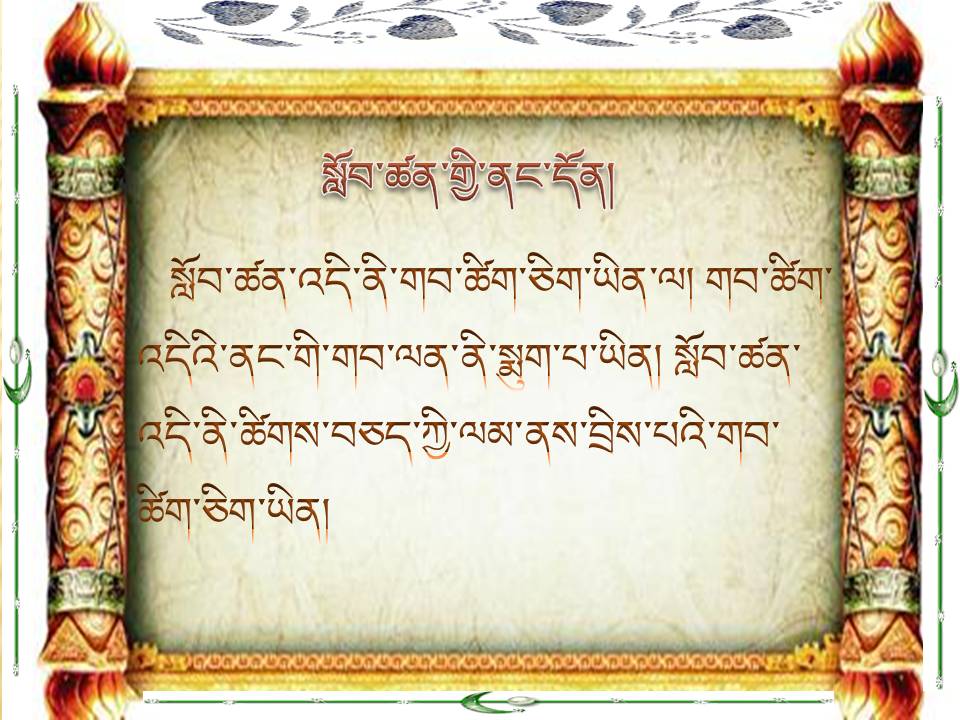 སློབ་ཚན་གྱི་ནང་དོན།
སློབ་ཚན་འདི་ནི་གབ་ཚིག་ཅིག་ཡིན་ལ། གབ་ཚིག་
འདིའི་ནང་གི་གབ་ལན་ནི་སྨྱུག་པ་ཡིན། སློབ་ཚན་
འདི་ནི་ཚིགས་བཅད་ཀྱི་ལམ་ནས་བྲིས་པའི་གབ་
ཚིག་ཅིག་ཡིན།